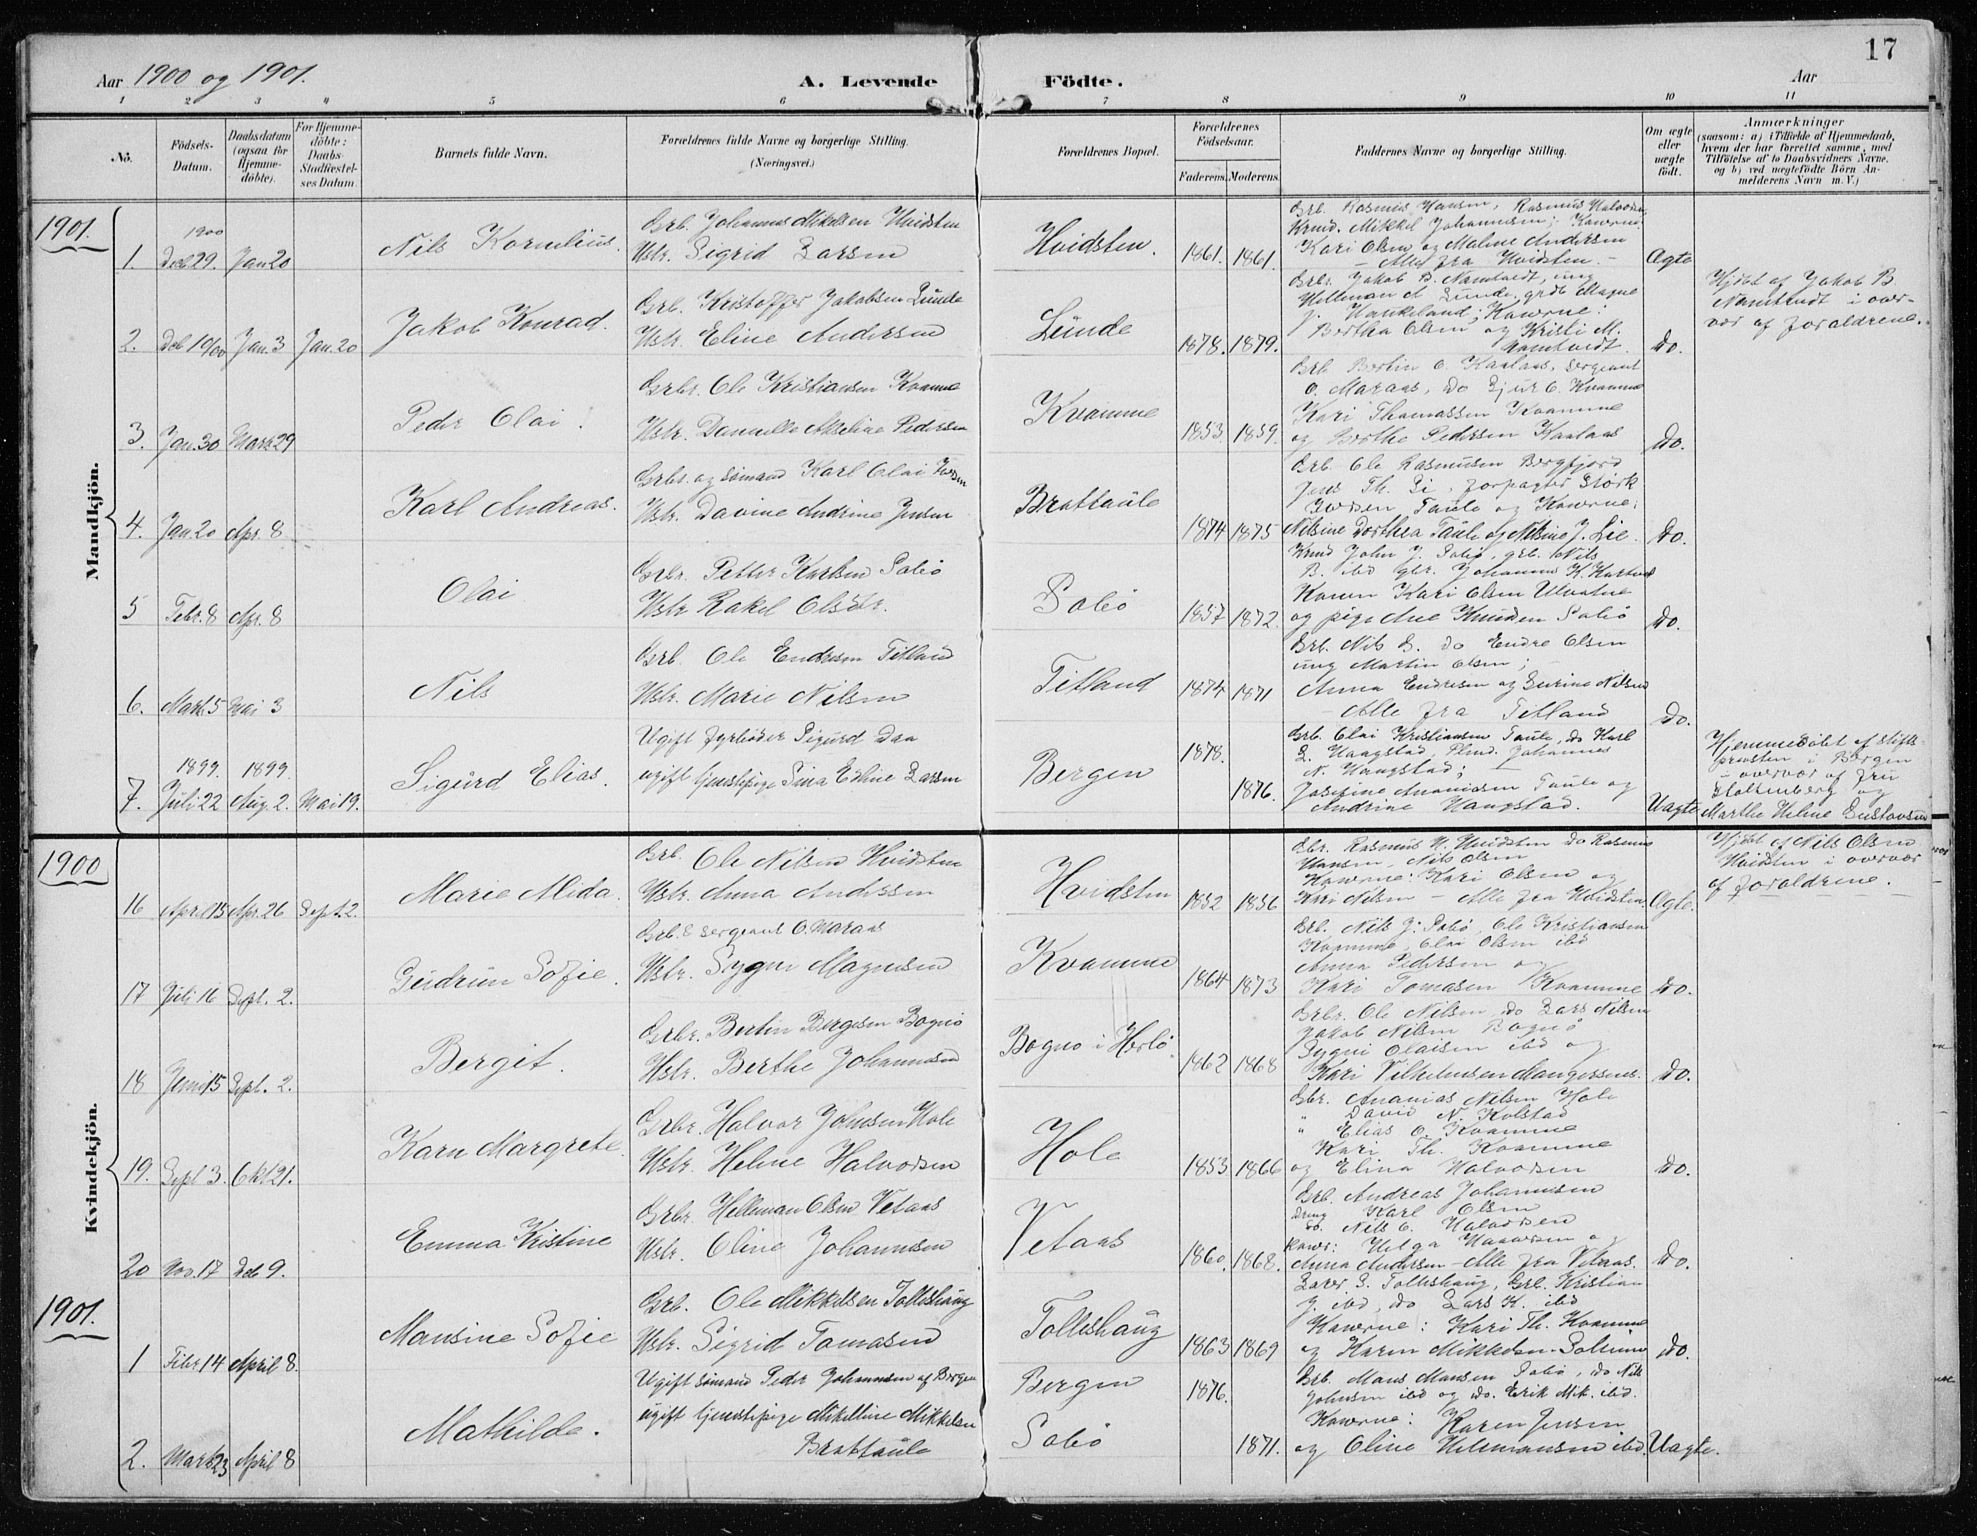 17
Aar 1900 og 1901.
A. Levende Födte.
Aar
1 2 3 4 5 6 7 8 9 10 11
No.
Födsels-
Datum.
Daabsdatum
(ogsaa for
Hjemme-
döbte).
For Hjemme-
döbte:
Daabs-
Stadfæstel-
ses Datum
Barnets fulde Navn.
Forældrenes fulde Navne og borgerlige Stilling.
(Næringsvei.)
Forældrenes Bopæl.
Forældrenes
Födselsaar.
Faderens. Moderens.
Faddernes Navne og borgerlige Stilling.
Om ægte
eller
uægte
födt.
Anmærkninger
(saasom: a) i Tilfælde af Hjemmedaab,
hvem der har forrettet samme, med
Tilföielse af to Daabsvidners Navne.
og b) ved uægtefödte Börn An-
melderens Navn m. V.)
Mandkjön.
1901.
1. 1900 Dec 29. Jan 20
Nils Kornelius.
Grb. Johannes Mikelsen Hvidsten
Hstr. Sigrid Larsen
Hvidsten.
1861. 1861.
Grb. Rasmus Hansen, Rasmus
Mikkel Johannesen; Konerne:
Kari Olsen og Maline Andersen
– Alle fra Hvidsten. –
Ægte
2. Dec 10/00 Jan. 3 Jan. 20
Jakob Konrad.
Grb. Kristoffer Jakobsen Lunde
Hstr. Eline Andersen
Lunde
1878. 1879.
Grbr. Jakob B. Namtvedt, ung
Hilleman A. Lunde, grdb Magne
J. Vankeland; Konerne:
Bertha Olsen og Kristi M.
Namtvedt.
Do.
Hjdbt af Jakob B.
Namtvedt i over-
vær af forældrene.
3. Jan. 30 Marts 29
Peder Olai.
Grbr. Ole Kristiansen Kvamme
Hstr. Danielle Akseline Pedersen
Kvamme
1853. 1859.
Grb Bertin O. Kaalaas, Sergeant
O. Maraas, Do Sjur O. Kvamme
Kari Thomassen Kvamme
og Berthe Pedersen Kaalaas
Do.
4. Jan. 20 Apr. 8
Karl Andreas.
Grbr. og sömand Karl Olai
Hstr. Davine Andrine Jensen
Brattaule
1874 1875
Grb. Ole Rasmussen Bergfjord
Jens Th. Li, forpagter Störk
Taule og Konerne:
Nilsine Dorthea Taule og Nilsine J. Lie.
Do.
5 Febr. 8 Apr. 8
Olai.
Grbr. Petter Karlsen Solbö
Hstr Rakel Olsdtr.
1857 1872.
John J. grb. Nils
B. ibd gbr. Johannes K.
Konen Kari Olsen
og pige Ane Knudsen
Do.
6. Marts 5 Mai 3
Nils
Grb. Ole Endresen Titland
Hstr. Marie Nilsen
Titland
1874 1871
Grb. Nils B. do Endre Olsen
ung Martin Olsen;
Anna Endresen og Nilsen
– Alle fra Titland
Do.
7. 1899. Juli 22 1899. Aug. 2. Mai 19.
Sigurd Elias.
Ugift fyrböder Sigurd Daa
ugift tjenestepige Sina Eline Larsen
Bergen
1878.
1876.
Grb. Olai Kristiansen Taule, Do Karl
L. Haagstad, Johannes
N. Haugstad;
Josefine Ananiasen Taule og
Andrine Haugstad.
Uægte
Hjemmedöbt af stifts-
provsten i Bergen
i overvær af fru
Stoltenberg og
Marthe Heline Gustavsen
Kvindekjön.
1900
16 April 15 Apr. 26 Sept. 2.
Marie Alida.
Grb. Ole Nilsen Hvidsten
Hstr. Anna Andersen
Hvidsten
1852 1856
Gbr. Rasmus N. Hvidsten Do Rasmus
Hansen, Nils Olsen
Konerne: Kari Olsen og
Kari Nilsen – Alle fra Hvidsten.
Ægte.
Hjdbt af Nils Olsen
Hvidsten i overvær
af forældrene.
17 Juli 16 Sept. 2.
Gudrun Sofie.
Grb. & sergeant O. Maraas
Hstr. Sygni Magnusen
Kvamme
1864 1873
Grb. Nils J. Ole Kristiansen
Kvamme, Olai Olsen ibd
Anna Pedersen og
Kari Tomasen Kvamme
Do.
18 Juni 15 Sept. 2.
Bergit.
Grbr. Bertin Bergesen Bognö
Hstr. Berthe Johannesen
Bognö i Herlö.
1862 1868
Grbr. Ole Nilsen, Do Lars Nilsen
Jakob Nilsen Bognö
Sygni Olaisen ibd og
Kari Vilhelmsen
Do.
19. Sept 3. Okt 21.
Karn Margrete.
Grbr. Halvor Johnsen Hole
Hstr. Heline Halvorsen
Hole
1853 1866
Gbr. Ananias Nilsen Hole
" David N. Kolstad
" Elias O. Kvamme
Kari Th. Kvamme
og Elina Halvorsen
Do.
20 Nov. 17 Dec 9.
Emma Kristine
Grbr. Helleman Olsen Vetaas
Hstr. Oline Johannesen
Vetaas
1860. 1868.
Grb. Andreas Johannesen
Dreng Karl Olsen
Do. Nils O. Halvorsen
Koner: Helga og
Anna Andersen – Alle fra Vetaas.
Do.
1901.
1 Febr 14 April 8.
Mansine Sofie
Grb. Ole Mikkelsen Tolleshaug
Hstr. Sigrid Tomasen
Tolleshaug
1863 1869
L. Tolleshaug, Grb. Kristian
J. ibd, do Lars K. ibd
Konerne: Kari Th. Kvamme
og Karen Mikkelsen
Do.
2. Marts 23 April 8
Mathilde.
Ugift sömand Peder Johannesen af Bergen
ugift tjenestepige Mikeline Mikkelsen
Brattaule
Bergen
Solbö
1876.
1871.
Grb. Mons Monsen Do Nils
Johnsen ibd og Do. Erik Mik. ibd.
Konerne: Karen Jensen
og Oline Hillemansen ibd.
Uægte.